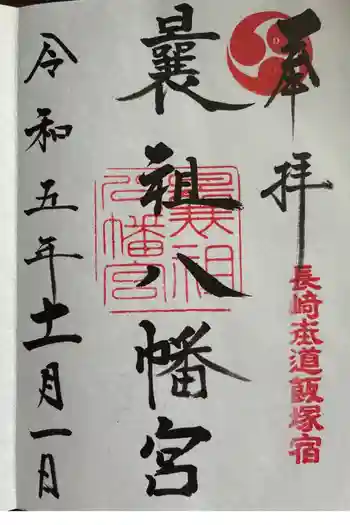 奉拝
長崎本道飯塚宿
曩祖八幡宮
曩祖八幡宮
令和五年十一月一日